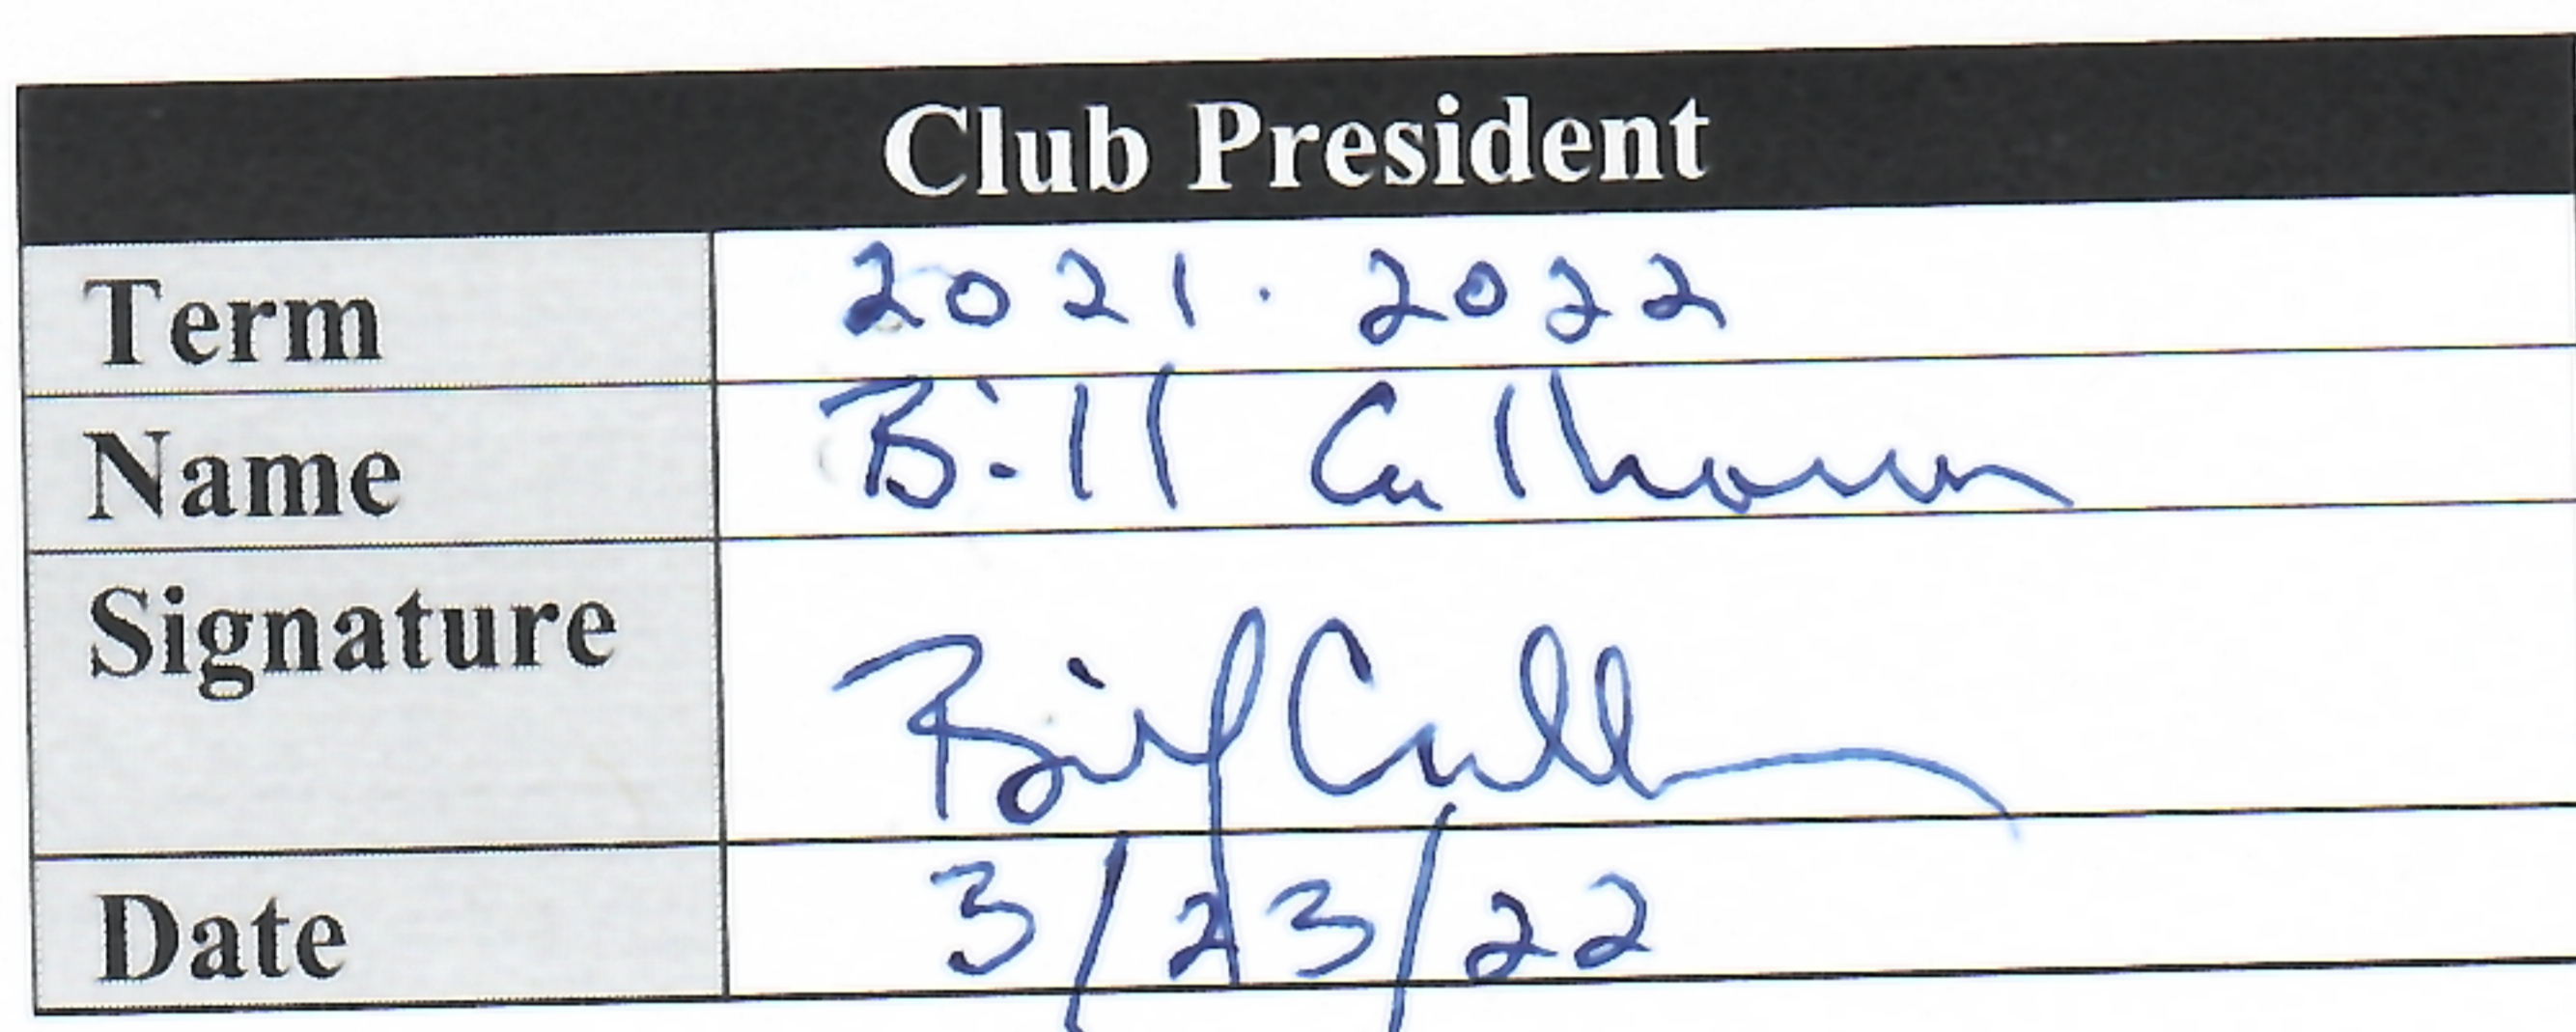 Club President
Term 2021. 2022
Name Bill Calhoun
Signature Bill Calhoun
Date 3/23/22